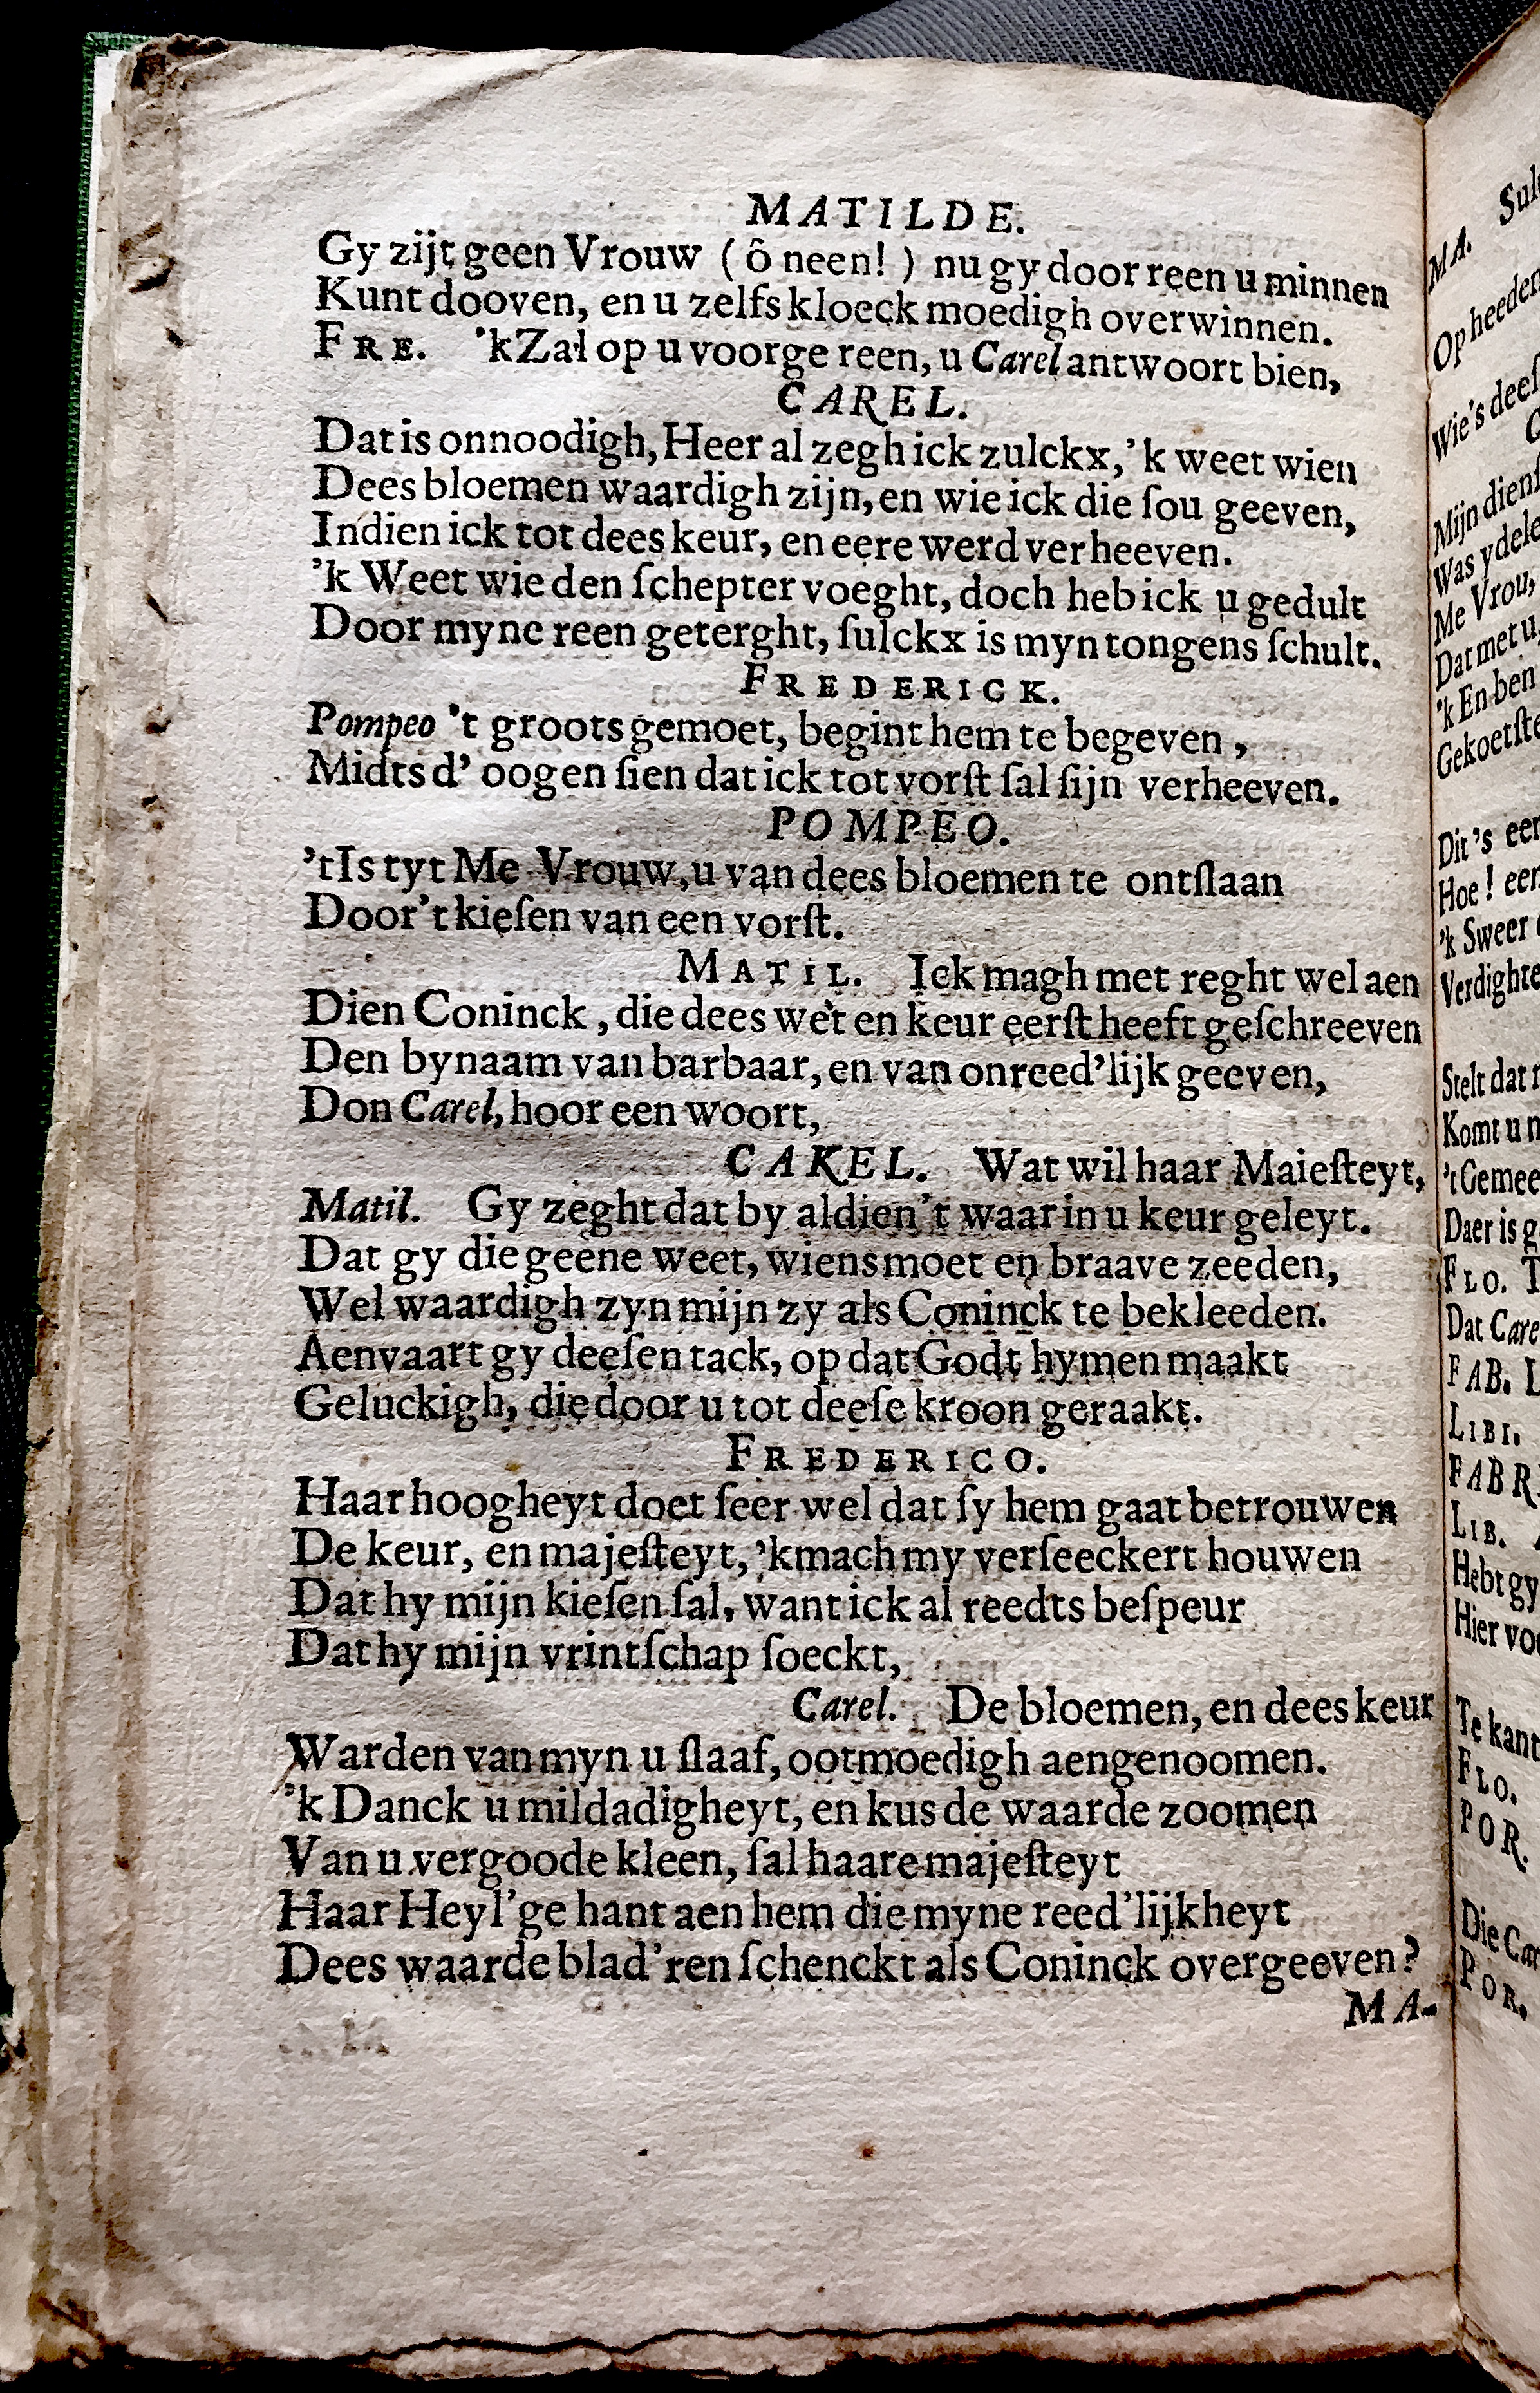 MATILDE.
Gy zijt geen Vrouw ( ô neen! ) nu gy door reen u minnen
Kunt dooven, en u zelfs kloeck moedigh overwinnen.
FRE. 'k Zal op u voorge reen, u Carel antwoort bien,
CAREL.
Dat is onnoodigh, Heer al zegh ick zulckx, 'k weet wien
Dees bloemen waardigh zijn, en wie ick die ſou geeven,
Indien ick tot dees keur, en eere werd verheeven.
'k Weet wie den ſchepter voeght, doch heb ick u gedult
Door myne reen geterght, ſulckx is myn tongens ſchult.
FREDERICK.
Pompeo 't groots gemoet, begint hem te begeven,
Midts d' oogen ſien dat ick tot vorſt ſal ſijn verheeven.
POMPEO.
't Is tyt Me Vrouw, u van dees bloemen te ontſlaan
Door 't kieſen van een vorſt.
MATIL. Ick magh met reght wel aen
Dien Coninck, die dees wet en keur eerſt heeft geſchreeven
Den bynaam van barbaar, en van onreed'lijk geeven,
Don Carel, hoor een woort,
CAKEL. Wat wil haar Maieſteyt,
Matil. Gy zeght dat by aldien 't waar in u keur geleyt.
Dat gy die geene weet, wiens moet en braave zeeden,
Wel waardigh zyn mijn zy als Coninck te bekleeden.
Aenvaart gy deeſen tack, op dat Godt hymen maakt
Geluckigh, die door u tot deeſe kroon geraakt.
FREDERICO.
Haar hoogheyt doet ſeer wel dat ſy hem gaat betrouwen
De keur, en majeſteyt, 'k mach my verſeeckert houwen
Dat hy mijn kieſen ſal, want ick al reedts beſpeur
Dat hy mijn vrintſchap ſoeckt,
Carel. De bloemen, en dees keur
Warden van myn u ſlaaf, ootmoedigh aengenoomen.
'k Danck u mildadigheyt, en kus de waarde zoomen
Van u vergoode kleen, ſal haare majeſteyt
Haar Heyl'ge hant aen hem die myne reed'lijkheyt
Dees waarde blad'ren ſchenckt als Coninck overgeeven?
MA-
MA.
Op
Wie's
Mijn
Was
Me Vrou,
Dat met u,
'k En ben
Dit 's
Hoe!
'k Sweer
Stelt dat
Komt u
Daer is
FLO.
Dat
FAB.
LIBI.
LIB.
Hebt gy
Hier
Te
FLO.
POR.
Die
POR.